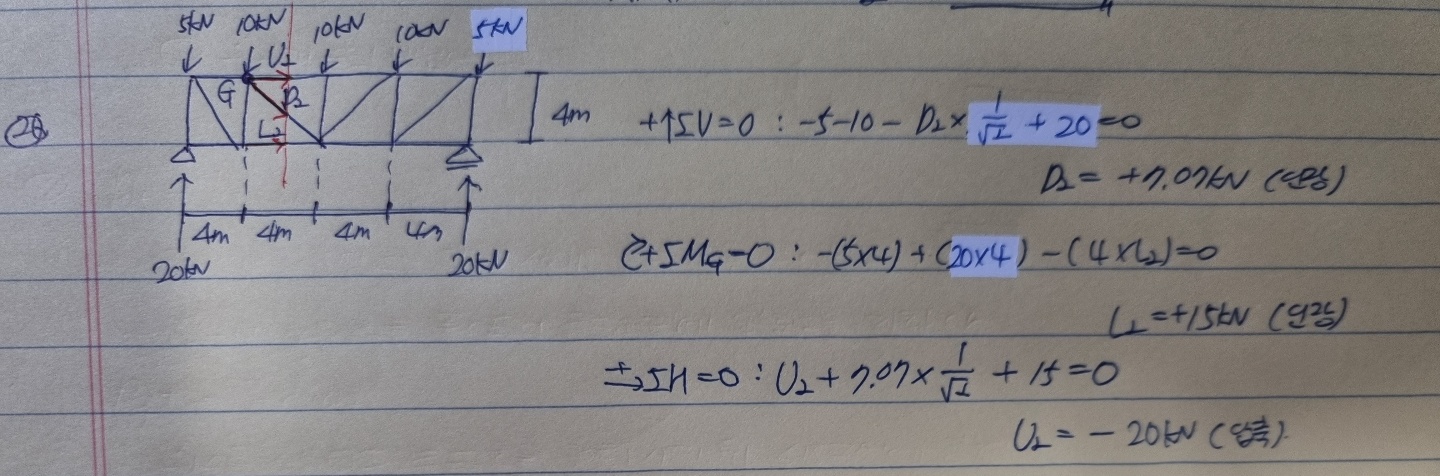 5kN 10kN 10kN 10kN 5kN
U₂
G D₂
L₂
4m
4m 4m 4m 4m
20kN 20kN
+↑ΣV=0 : -5-10-D₂×1/√2+20=0
D₂=+7.07kN (인장)
+ΣM_G=0 : -(5×4)+(20×4)-(4×L₂)=0
L₂=+15kN (인장)
+→ΣH=0 : U₂+7.07×1/√2+15=0
U₂=-20kN (압축).